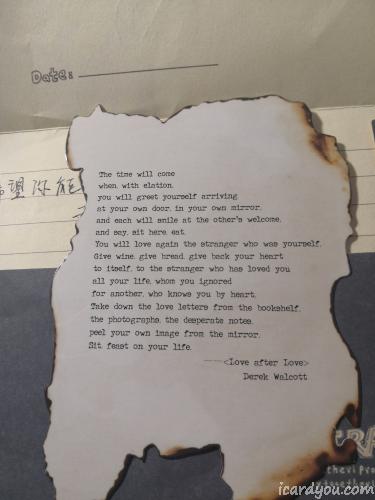 Date:
希望你能
The time will come
when, with elation,
you will greet yourself arriving
at your own door, in your own mirror,
and each will smile at the other's welcome,
and say, sit here, eat.
You will love again the stranger who was yourself.
Give wine, give bread, give back your heart
to itself, to the stranger who has loved you
all your life, whom you ignored
for another, who knows you by heart.
Take down the love letters from the bookshelf,
the photographs, the desperate notes,
peel your own image from the mirror.
Sit, feast on your life.
——<Love after Love>
Derek Walcott
icardyou.com